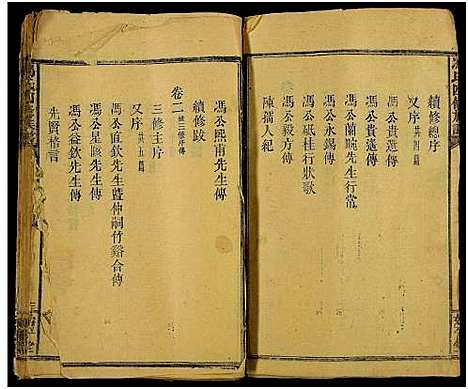 續修總序
又序 共四篇
馮公貴選傳
馮公貴遜傳
馮公蘭畹先生行常
馮公永錫傳
馮公砥柱行狀歌
馮公毅方傳
陳孺人紀
續修跋
馮公熙甫先生傳
卷二
三修主片
又序 共五篇
馮公直欽先生暨仲嗣竹谿合傳
馮公星陔先生傳
馮公益欽先生傳
先賢格言